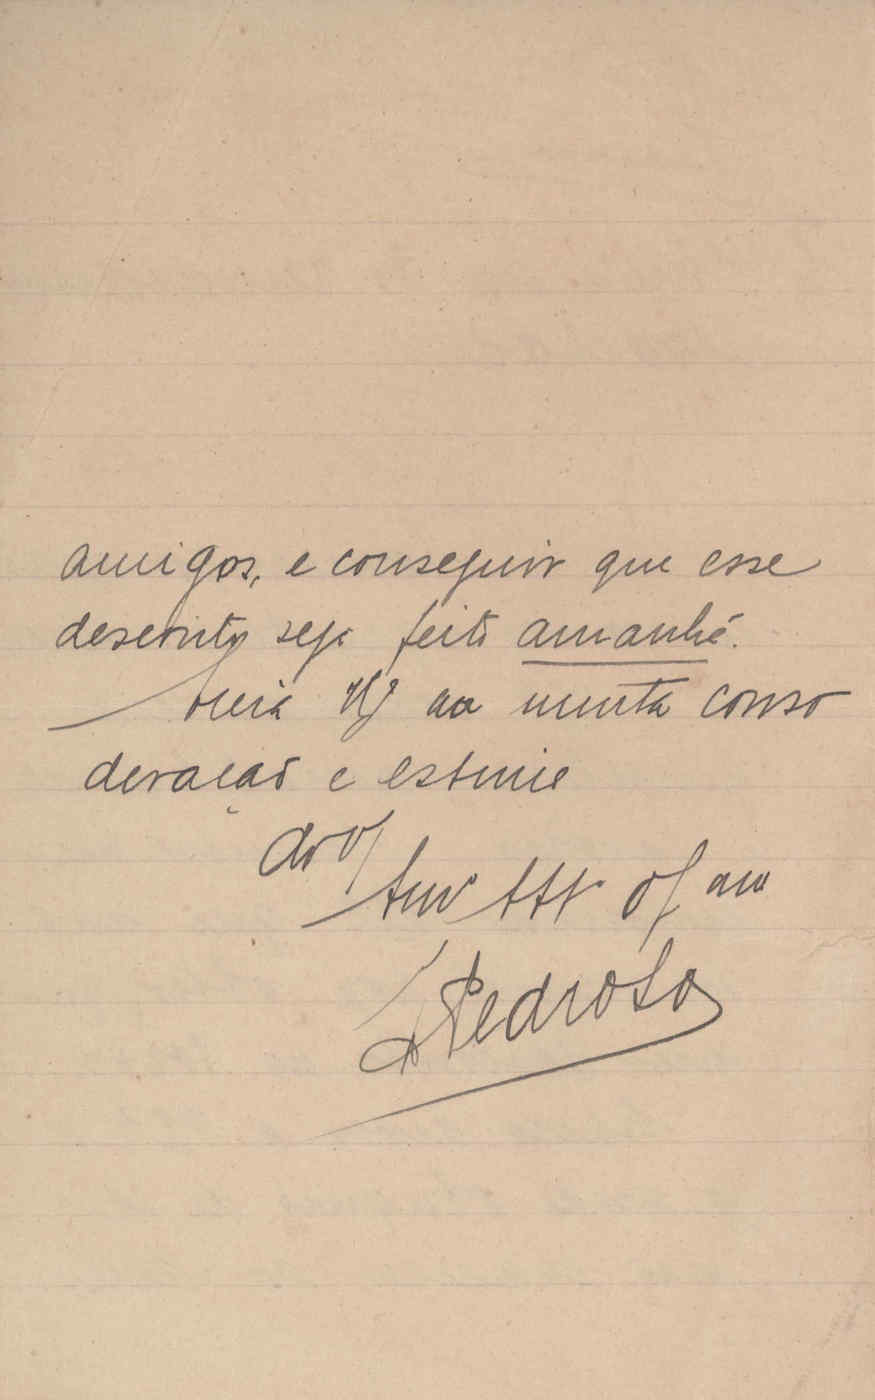 amigos, e conseguir que esse
desconto seja feito amanhã.
Creia VEx na muita consi
deração e estima
de VEx
Amº Attº
Pedroso